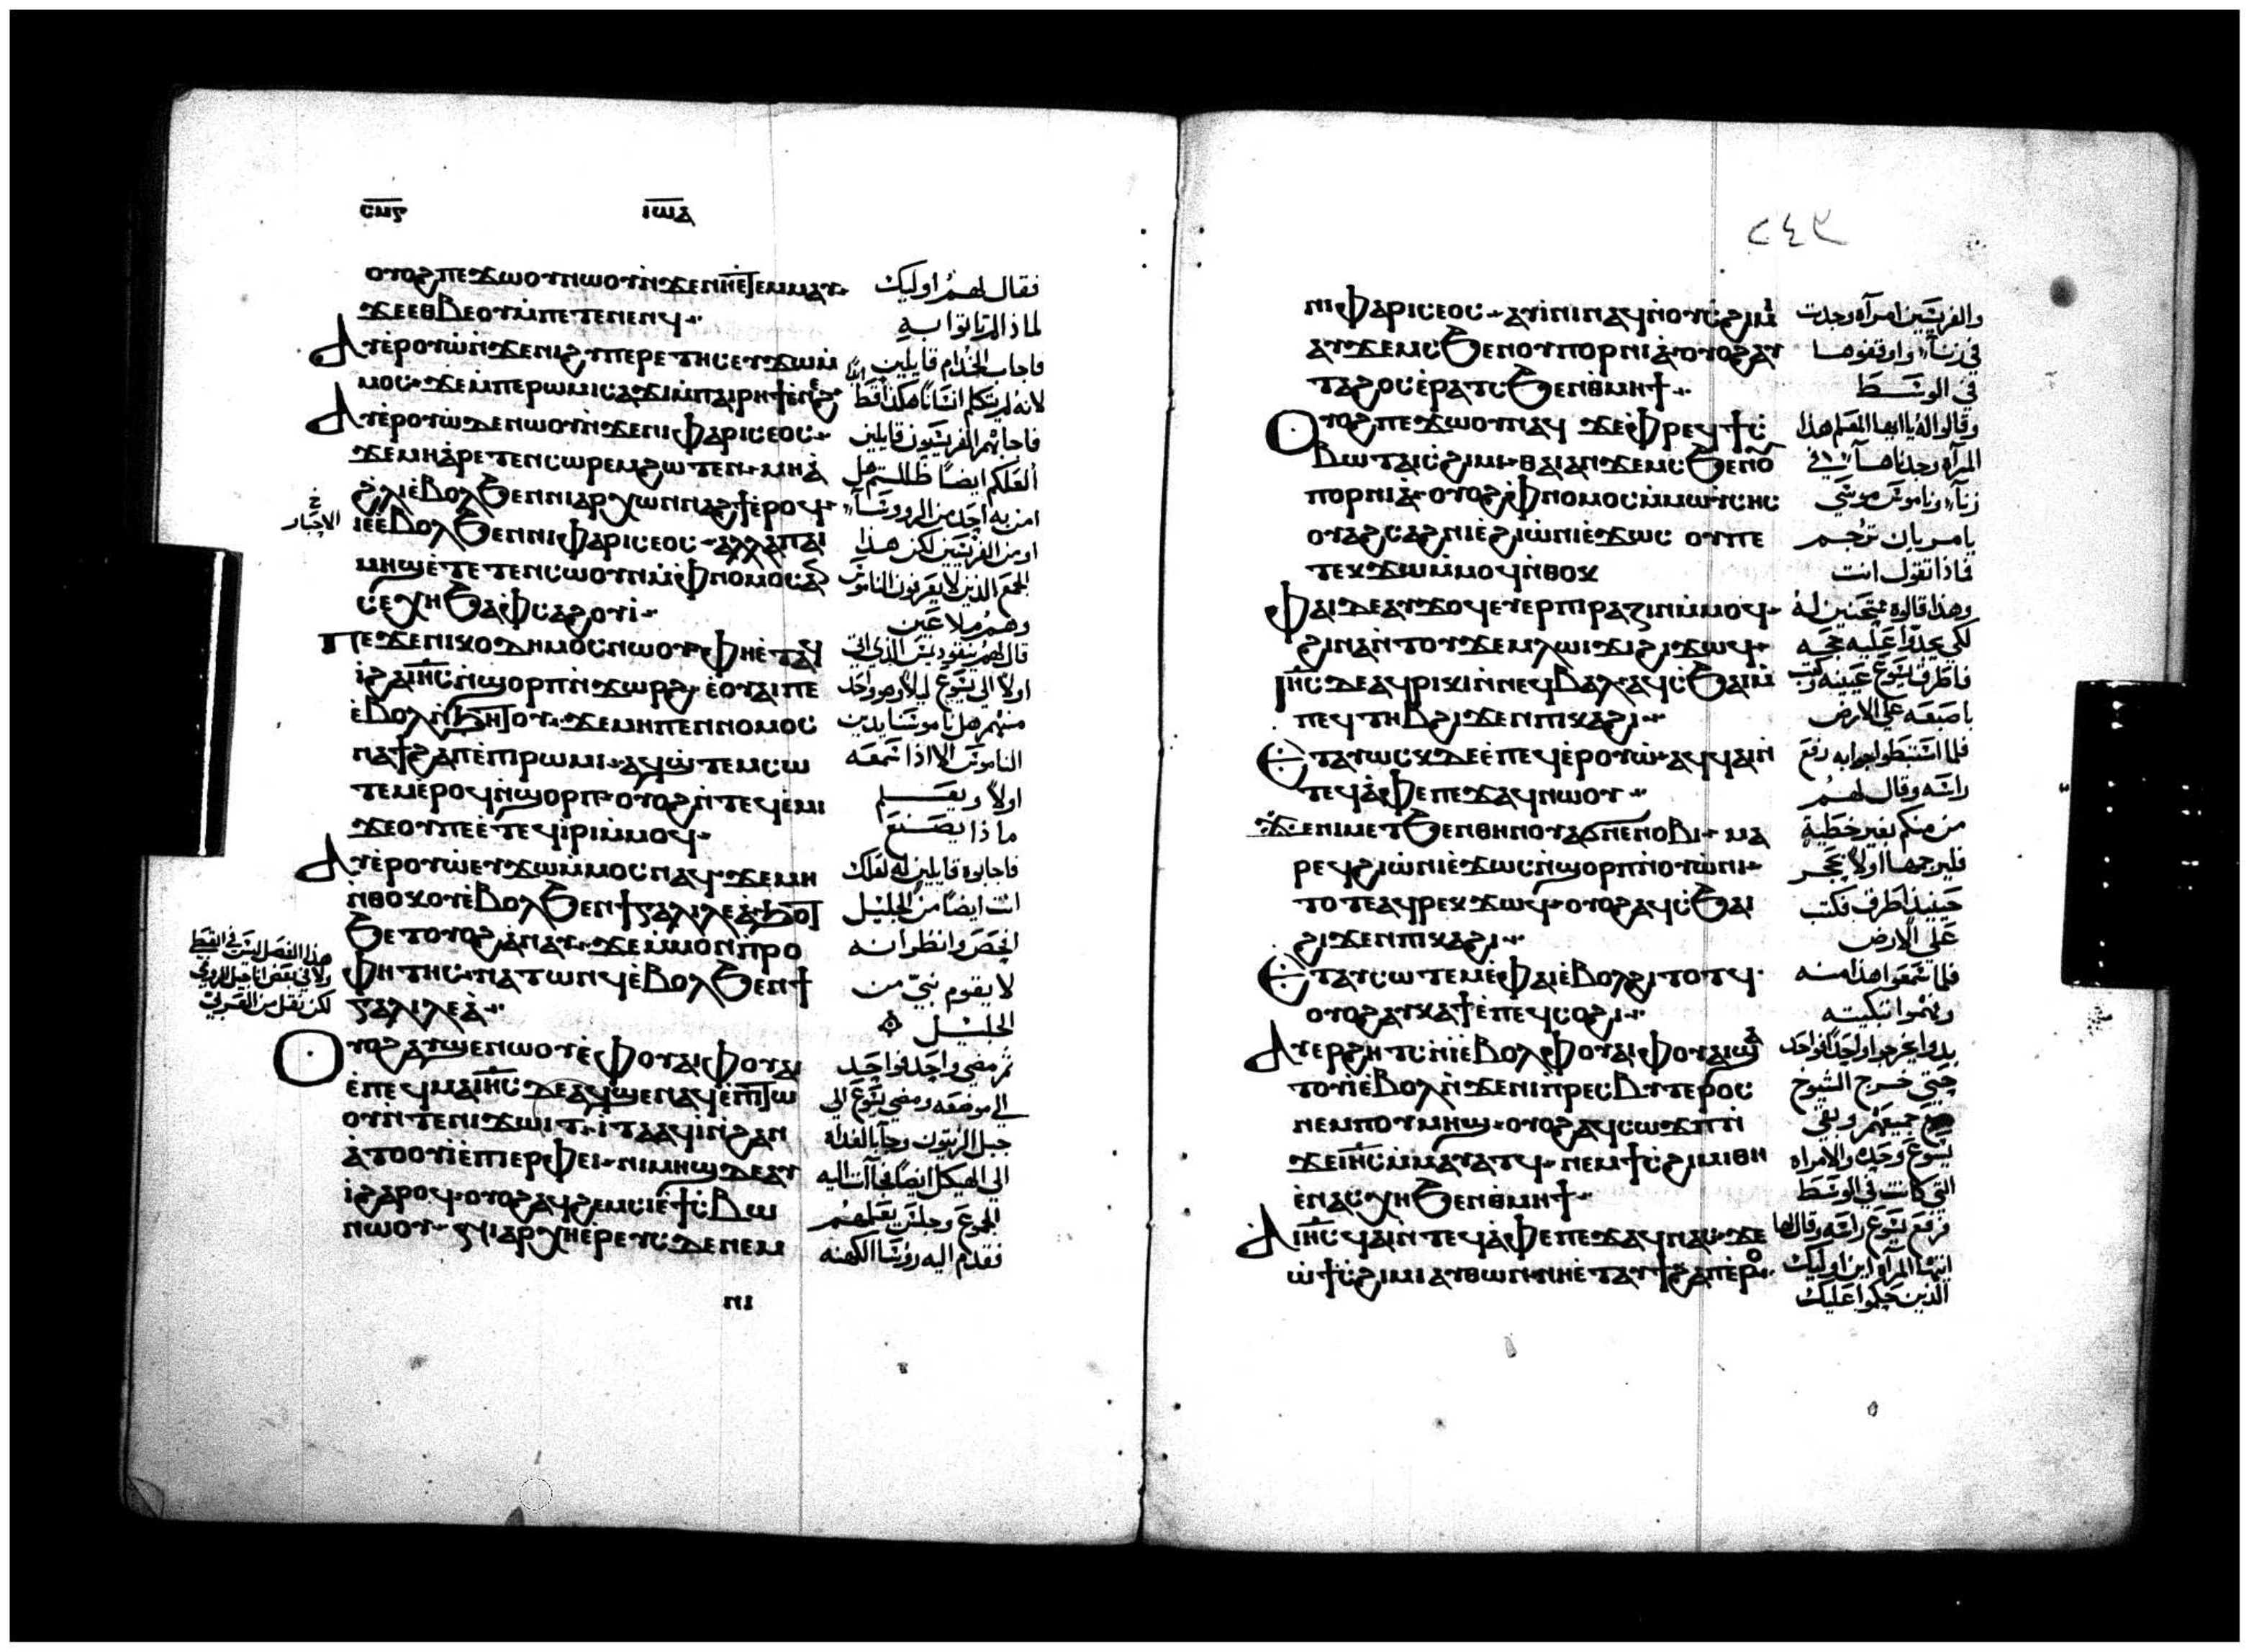 ⲥⲙⲋ
ⲓⲱⲁ
ⲟⲩⲟϩ ⲡⲉϫⲱⲟⲩ ⲛⲱⲟⲩ ⲛ̀ϫⲉ ⲛⲏⲉ̀ⲧⲉⲙⲙⲁⲩ
ϫⲉ ⲉⲑⲃⲉ ⲟⲩ ⲙ̀ⲡⲉⲧⲉⲛⲉⲛϥ
ⲁⲩⲉ̀ⲣⲟⲩⲱ̀ ⲛ̀ϫⲉ ⲛⲓϩⲩⲡⲉⲣⲉⲧⲏⲥ ⲉⲩϫⲱ ⲙ̀
ⲙⲟⲥ ϫⲉ ⲙ̀ⲡⲉ ⲣⲱⲙⲓ ⲥⲁϫⲓ ⲙ̀ⲡⲁⲓⲣⲏϯ ⲉⲛⲉϩ
ⲁⲩⲉ̀ⲣⲟⲩⲱ̀ ⲇⲉ ⲛⲱⲟⲩ ⲛ̀ϫⲉ ⲛⲓⲫⲁⲣⲓⲥⲉⲟⲥ
ϫⲉ ⲙⲏ ⲁ̀ⲣⲉⲧⲉⲛⲥⲱⲣⲉⲙ ϩⲱⲧⲉⲛ ⲙⲏ ⲁ̀
ϩ̀ⲗⲓ ⲉ̀ⲃⲟⲗ ϧⲉⲛ ⲛⲓⲁⲣⲭⲱⲛ ⲛⲁϩϯ ⲉ̀ⲣⲟϥ
ⲓⲉ ⲉ̀ⲃⲟⲗ ϧⲉⲛ ⲛⲓⲫⲁⲣⲓⲥⲉⲟⲥ ⲁⲗⲗⲁ ⲡⲁⲓ
ⲙⲏϣ ⲉ̀ⲧⲉ
ⲥⲉⲭⲏ ϧⲁ ⲫ̀ⲥⲁϩⲟⲩⲓ
ⲡⲉϫⲉ ⲛⲓⲕⲟⲇⲏⲙⲟⲥ ⲛⲱⲟⲩ ⲫⲏⲉ̀ⲧⲁϥ
ⲓ̀ ϩⲁ ⲓⲏⲥ ⲛ̀ϣⲟⲣⲡ ⲛ̀ϫⲱⲣϩ ⲉ̀ⲟⲩⲁⲓ ⲡⲉ
ⲉ̀ⲃⲟⲗ ⲛ̀ϧⲏⲧⲟⲩ ϫⲉ ⲙⲏ ⲡⲉⲛⲛⲟⲙⲟⲥ
ⲛⲁϯϩⲁⲡ ⲉ̀ⲡⲓⲣⲱⲙⲓ ⲁϥϣ̀ⲧⲉⲙⲥⲱ
ⲧⲉⲙ ⲉ̀ⲣⲟϥ ⲛ̀ϣⲟⲣⲡ ⲟⲩⲟϩ ⲛ̀ⲧⲉϥⲉ̀ⲙⲓ
ϫⲉ ⲟⲩ ⲡⲉ ⲉ̀ⲧⲉϥⲓ̀ⲣⲓ ⲙ̀ⲙⲟϥ
ⲁⲩⲉ̀ⲣⲟⲩⲱ̀ ⲉⲩϫⲱ ⲙ̀ⲙⲟⲥ ⲛⲁϥ ϫⲉ ⲙⲏ
ⲛ̀ⲑⲟⲕ ⲟⲩⲉ̀ⲃⲟⲗ ϧⲉⲛ ϯⲅⲁⲗⲓⲗⲉⲁ̀ ϧⲟⲧ
ϧⲉⲧ ⲟⲩⲟϩ ⲁ̀ⲛⲁⲩ ϫⲉ ⲙ̀ⲙⲟⲛ ⲡ̀ⲣⲟ
ⲫⲏⲧⲏⲥ ⲛⲁⲧⲱⲛϥ ⲉ̀ⲃⲟⲗ ϧⲉⲛ ϯ
ⲅⲁⲗⲓⲗⲉⲁ̀
ⲟⲩⲟϩ ⲁⲩϣⲉⲛⲱⲟⲩ ⲉ̀ⲫⲟⲩⲁⲓ ⲫⲟⲩⲁⲓ
ⲉ̀ⲡⲉϥⲙⲁ ⲓⲏⲥ ⲇⲉ ⲁϥϣⲉⲛⲁϥ ⲉ̀ⲡⲧⲱ
ⲟⲩ ⲛ̀ⲧⲉ ⲛⲓϫⲱⲓⲧ ⲓ̀ⲧⲁ ⲁϥⲓ̀ ⲛ̀ϩⲁⲛ
ⲁ̀ⲧⲟⲟⲩⲓ̀ ⲉ̀ⲡⲓⲉⲣⲫⲉⲓ ⲛⲓⲙⲏϣ ⲇⲉ ⲁⲩ
ⲓ̀ ϩⲁⲣⲟϥ ⲟⲩⲟϩ ⲁϥϩⲉⲙⲥⲓ ⲉ̀ϯⲥ̀ⲃⲱ
ⲛⲱⲟⲩ ϩⲓⲁⲣⲭⲏⲉ̀ⲣⲉⲩⲥ ⲇⲉ ⲛⲉⲙ
ⲛⲓ
فقال لهم اوليك
لماذا لم تاتوا به
فاجاب الخدام قايلين
لانه لم يتكلم انسانا هكذا قط
فاجابهم الفريسيون قايلين
العلكم ايضا ظللتم هل
امن به احد من الروسا
او من الفريسيين لكن هذا
الجمع الذين لا يعرفون الناموس
وهم ملاعين
قال لهم نيقوديمس الذي اتى
اولا الى يسوع ليلا وهو احد
منهم هل ناموسنا يدين
الناموس الا اذا سمعه
اولا ويعلم
ماذا يصنع
فاجابوه قايلين له لعلك
انت ايضا من الجليل
افحص وانظر انه
لا يقوم نبي من
الجليل
ثم مضى واحد فواحد
الى موضعه ومضى يسوع الى
جبل الزيتون وجا بالغداه
الى الهيكل ايضا فاات اليه
الجموع وجلس يعلمهم
فقدم اليه روسا الكهنه
الاحبار
هذا الفصل ليس في القبطي
ولا في بعض اناجيل الرومي
لكن نقل من العربي
٢٤٣
ⲛⲓⲫⲁⲣⲓⲥⲉⲟⲥ ⲁⲩⲓ̀ⲛⲓ ⲛⲁϥ ⲛ̀ⲟⲩⲥ̀ϩⲓⲙⲓ
ⲁⲩϫⲉⲙⲥ ϧⲉⲛ ⲟⲩⲡⲟⲣⲛⲓⲁ̀ ⲟⲩⲟϩ ⲁⲩ
ⲧⲁϩⲟⲥ ⲉ̀ⲣⲁⲧⲥ ϧⲉⲛ ⲑ̀ⲙⲏϯ
ⲟⲩⲟϩ ⲡⲉϫⲱⲟⲩ ⲛⲁϥ ϫⲉ ⲫ̀ⲣⲉϥϯⲥ̀
ⲃⲱ ⲧⲁⲓⲥ̀ϩⲓⲙⲓ ⲑⲁⲓ ⲁⲛϫⲉⲙⲥ ϧⲉⲛ ⲟⲩ
ⲡⲟⲣⲛⲓⲁ̀ ⲟⲩⲟϩ ⲫ̀ⲛⲟⲙⲟⲥ ⲙ̀ⲙⲱⲩ̀ⲥⲏⲥ
ⲟⲩⲁϩⲥⲁϩⲛⲓ ⲉ̀ϩⲓⲱ̀ⲛⲓ ⲉ̀ϫⲱⲥ ⲟⲩ ⲡⲉ
ⲧⲉⲕϫⲱ ⲙ̀ⲙⲟϥ ⲛ̀ⲑⲟⲕ
ⲫⲁⲓ ⲇⲉ ⲁⲩϫⲟϥ ⲉⲩⲉⲣⲡⲓⲣⲁⲍⲓⲛ ⲙ̀ⲙⲟϥ
ϩⲓⲛⲁ ⲛ̀ⲧⲟⲩϫⲉⲙ ⲗⲱⲓϫⲓ ϩⲓϫⲱϥ
ⲓⲏⲥ ⲇⲉ ⲁϥⲣⲓⲕⲓ ⲛ̀ⲛⲉϥⲃⲁⲗ ⲁϥⲥ̀ϧⲁⲓ ⲙ̀
ⲡⲉϥⲧⲏⲃ ϩⲓϫⲉⲛ ⲡⲓⲕⲁϩⲓ
ⲉⲧⲁⲩⲱⲥⲕ ⲇⲉ ⲉ̀ⲡⲉϥⲉ̀ⲣⲟⲩⲱ̀ ⲁϥϥⲁⲓ ⲛ̀
ⲧⲉϥⲁ̀ⲫⲉ ⲡⲉϫⲁϥ ⲛⲱⲟⲩ
ϫⲉ ⲛⲓⲙ ⲉⲧϧⲉⲛ ⲑⲏⲛⲟⲩ ⲁϭⲛⲉ ⲛⲟⲃⲓ ⲙⲁ
ⲣⲉϥϩⲓⲱ̀ⲛⲓ ⲉ̀ϫⲱⲥ ⲛ̀ϣⲟⲣⲡ ⲛ̀ⲟⲩⲱ̀ⲛⲓ
ⲧⲟⲧⲉ ⲁϥⲣⲉⲕ ϫⲱϥ ⲟⲩⲟϩ ⲁϥⲥ̀ϧⲁⲓ
ϩⲓϫⲉⲛ ⲡⲓⲕⲁϩⲓ
ⲉⲧⲁⲩⲥⲱⲧⲉⲙ ⲉ̀ⲫⲁⲓ ⲉ̀ⲃⲟⲗ ϩⲓⲧⲟⲧϥ
ⲟⲩⲟϩ ⲁⲩⲕⲁϯ ⲉ̀ⲡⲉϥⲥⲟϩⲓ
ⲁⲩⲉⲣϩⲏⲧⲥ ⲛ̀ⲓ̀ ⲉ̀ⲃⲟⲗ ⲫⲟⲩⲁⲓ ⲫⲟⲩⲁⲓ ϣⲁ
ⲧⲟⲩⲓ̀ ⲉ̀ⲃⲟⲗ ⲛ̀ϫⲉ ⲛⲓⲡ̀ⲣⲉⲥⲃⲩⲧⲉⲣⲟⲥ
ⲛⲉⲙ ⲡⲟⲩⲙⲏϣ ⲟⲩⲟϩ ⲁϥⲥⲱϫⲡ ⲛ̀
ϫⲉ ⲓⲏⲥ ⲙ̀ⲙⲁⲩⲁⲧϥ ⲛⲉⲙ ϯⲥ̀ϩⲓⲙⲓ ⲑⲏ
ⲉ̀ⲛⲁⲥⲭⲏ ϧⲉⲛ ⲑ̀ⲙⲏϯ
ⲁ̀ ⲓⲏⲥ ϥⲁⲓ ⲛ̀ⲧⲉϥⲁ̀ⲫⲉ ⲡⲉϫⲁϥ ⲛⲁⲥ ϫⲉ
ⲱ̀ ϯⲥ̀ϩⲓⲙⲓ ⲁⲩⲑⲱⲛ ⲛⲏⲉ̀ⲧⲁⲩϯϩⲁⲡ ⲉ̀ⲣⲟ
والفريسيين امراه وجدت
في زنا واوقفوها
في الوسط
وقالوا له يا ايها المعلم هذا
المراه وجدناها في
زنا وناموس موسى
يامر بان ترجم
فماذا تقول انت
وهذا قالوه ممتحنين له
لكي يجدوا عليه حجه
فاطرق يسوع عينيه وكتب
باصبعه على الارض
فلما استبطوا جوابه رفع
راسه وقال لهم
من منكم بغير خطية
فليرجمها اولا بحجر
حينيذ اطرق فكتب
على الارض
فلما سمعوا هذا منه
وفهموا تبكيته
بدوا يخرجوا واحدا فواحد
حتى خرج الشيوخ
جميعهم وبقي
يسوع وحده والامراه
التي كانت في الوسط
فرفع يسوع راسه وقال لها
ايتها المراه اين اوليك
الذين حكموا عليك